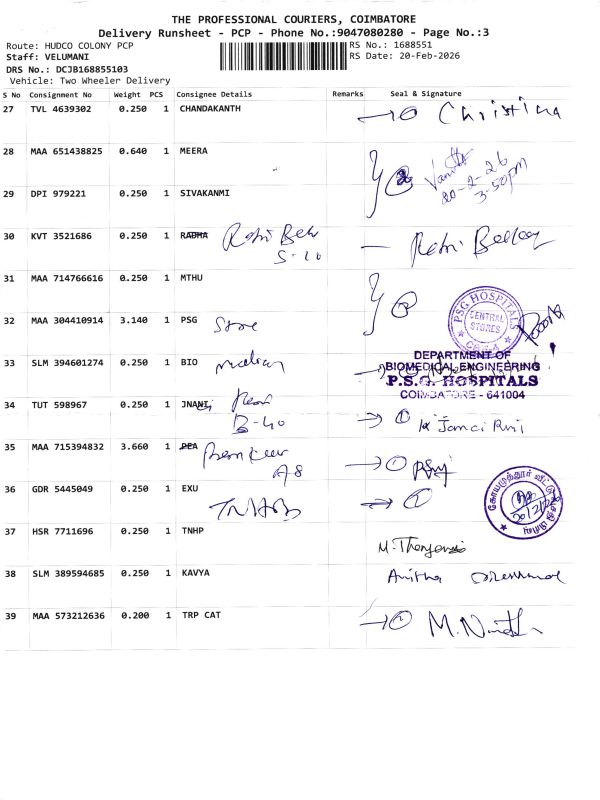 THE PROFESSIONAL COURIERS, COIMBATORE
Delivery Runsheet - PCP - Phone No.:9047080280 - Page No.:3
Route: HUDCO COLONY PCP RS No.: 1688551
Staff: VELUMANI RS Date: 20-Feb-2026
DRS No.: DCJB168855103
Vehicle: Two Wheeler Delivery
S No Consignment No Weight PCS Consignee Details Remarks Seal & Signature
27 TVL 4639302 0.250 1 CHANDAKANTH Christina
28 MAA 651438825 0.640 1 MEERA
20-2-26
3-50pm
29 DPI 979221 0.250 1 SIVAKANMI
30 KVT 3521686 0.250 1 RADHA
S-10
31 MAA 714766616 0.250 1 MTHU
32 MAA 304410914 3.140 1 PSG Store
PSG HOSPITALS
CENTRAL STORES
33 SLM 394601274 0.250 1 BIO
DEPARTMENT OF
BIOMEDICAL ENGINEERING
P.S.G. HOSPITALS
COIMBATORE - 641004
34 TUT 598967 0.250 1 JNANI
B-40
35 MAA 715394832 3.660 1 PEA
A8
36 GDR 5445049 0.250 1 EXU
TNHB
37 HSR 7711696 0.250 1 TNHP
38 SLM 389594685 0.250 1 KAVYA Anitha
39 MAA 573212636 0.200 1 TRP CAT